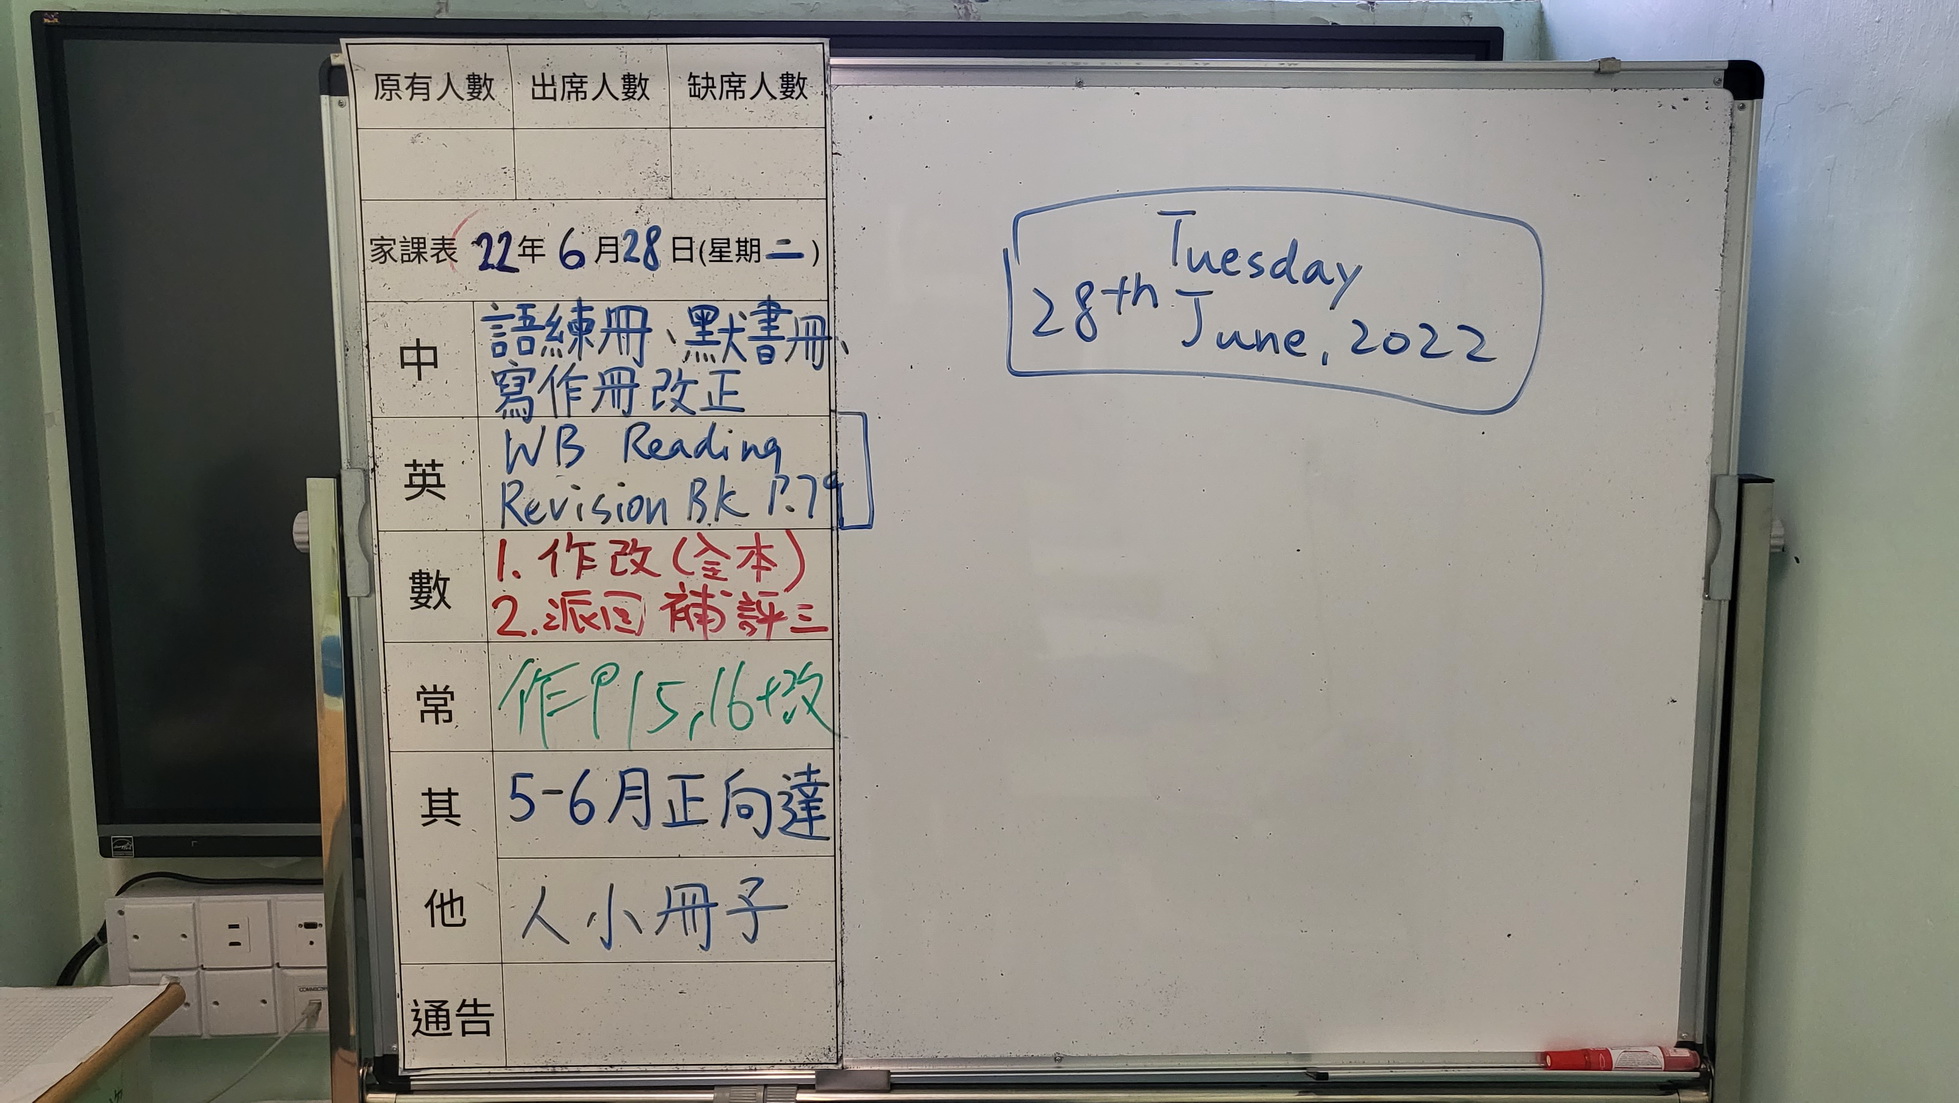 原有人數 出席人數 缺席人數
家課表 22年 6月28日(星期二)
中 語練冊、默書冊、
寫作冊改正
英 WB Reading
Revision BK P.79
數 1. 作改(全本)
2. 派回 補評三
常 作P15,16+改
其他 5-6月正向達
人小冊子
通告
Tuesday
28th June, 2022